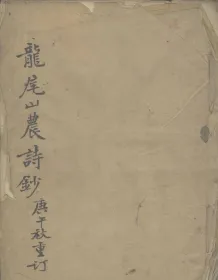 龍尾山農詩鈔
庚午秋重订